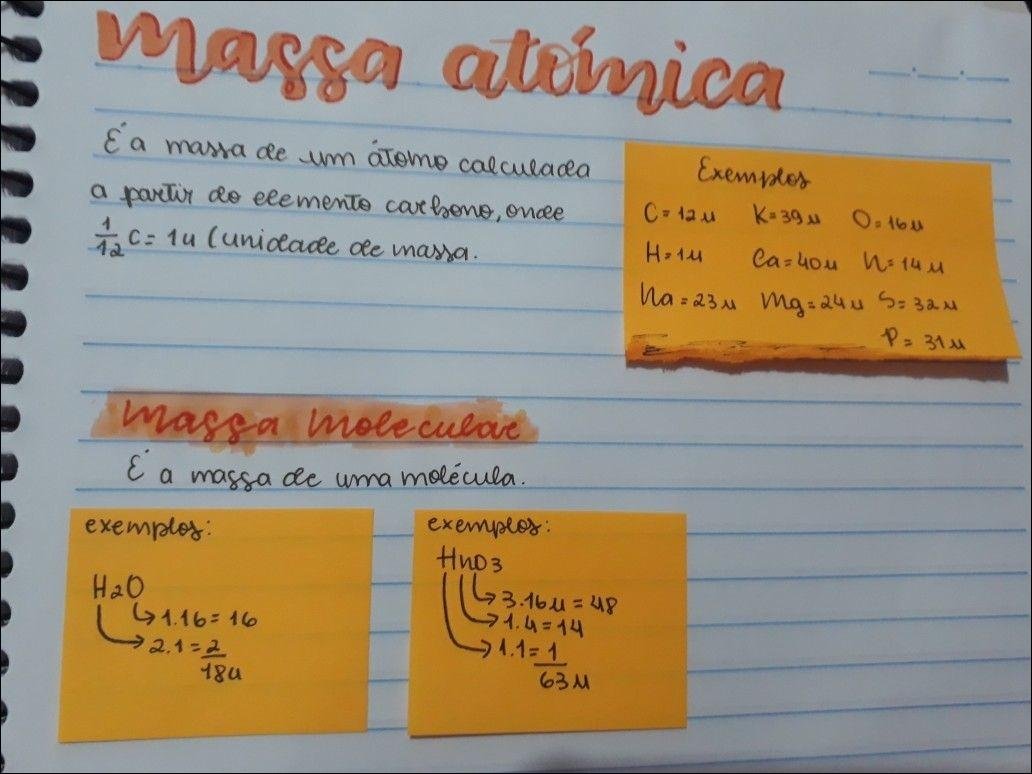 massa atómica
É a massa de um átomo calculada
a partir do elemento carbono, onde
1/12 C = 1u (unidade de massa.
Exemplos
C = 12u K = 39u O = 16u
H = 1u Ca = 40u N = 14u
Na = 23u Mg = 24u S = 32u
P = 31u
massa molecular
É a massa de uma molécula.
exemplos:
H2O
1.16 = 16
2.1 = 2
18u
exemplos:
HNO3
3.16u = 48
1.4 = 14
1.1 = 1
63u